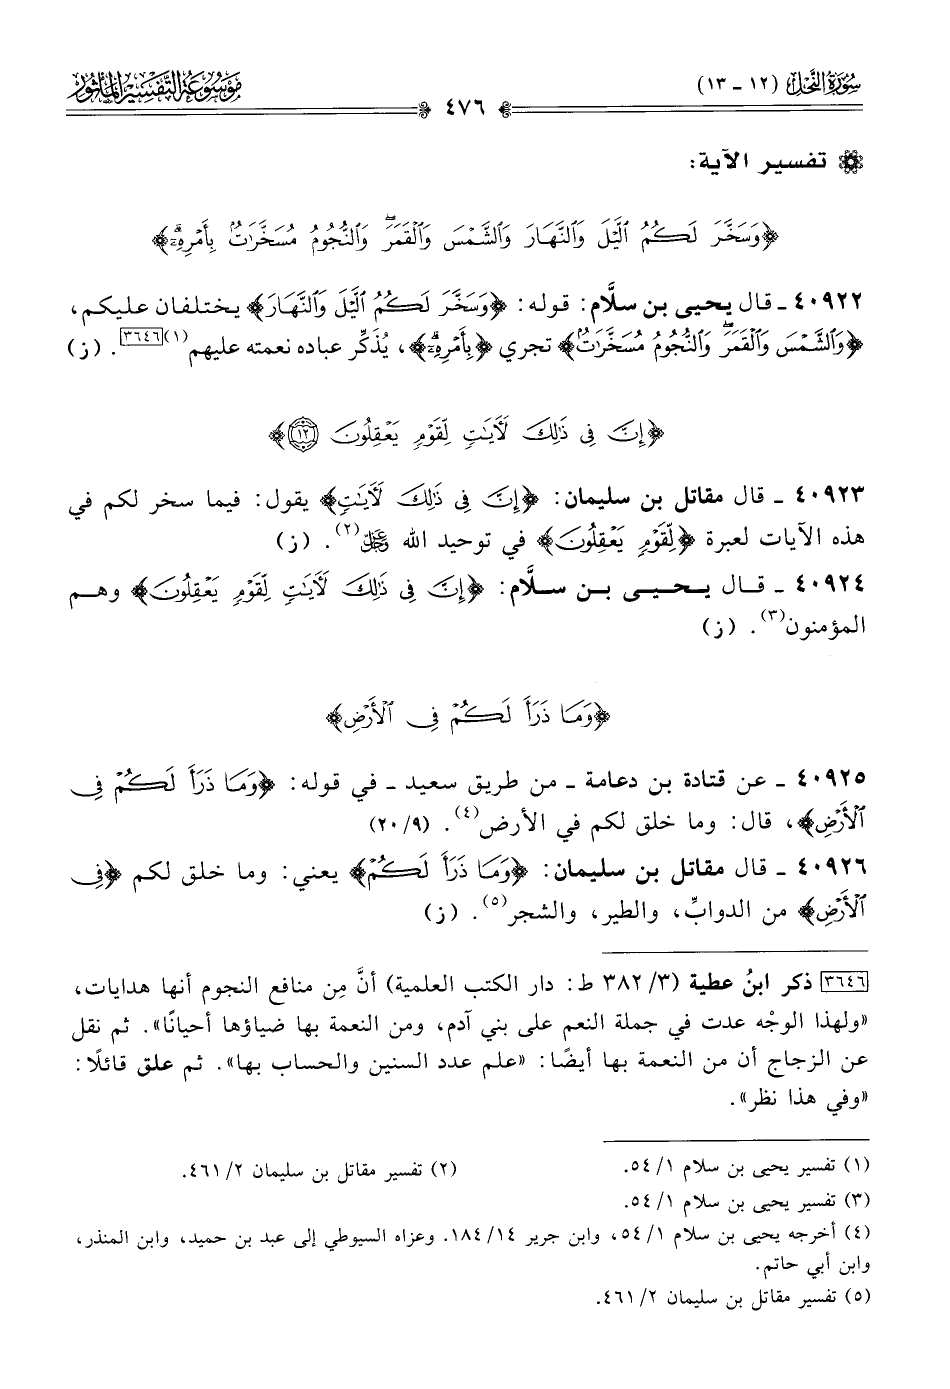 سُورَةُ النَّحْلِ (١٢ - ١٣)
٤٧٦
مَوْسُوعَةُ التَّفْسِيرِ المَأْثُورِ
تفسير الآية:
﴿وَسَخَّرَ لَكُمُ ٱلَّيْلَ وَٱلنَّهَارَ وَٱلشَّمْسَ وَٱلْقَمَرَۖ وَٱلنُّجُومُ مُسَخَّرَٰتُۢ بِأَمْرِهِۦٓ﴾
٤٠٩٢٢ - قال يحيى بن سلَّام: قوله: ﴿وَسَخَّرَ لَكُمُ ٱلَّيْلَ وَٱلنَّهَارَ﴾ يختلفان عليكم،
﴿وَٱلشَّمْسَ وَٱلْقَمَرَۖ وَٱلنُّجُومُ مُسَخَّرَٰتُۢ﴾ تجري ﴿بِأَمْرِهِۦٓ﴾، يُذَكِّر عباده نعمته عليهم(١)[٣٦٤٦]. (ز)
﴿إِنَّ فِى ذَٰلِكَ لَأٓيَٰتٍ لِّقَوْمٍ يَعْقِلُونَ ١٢﴾
٤٠٩٢٣ - قال مقاتل بن سليمان: ﴿إِنَّ فِى ذَٰلِكَ لَأٓيَٰتٍ﴾ يقول: فيما سخر لكم في
هذه الآيات لعبرة ﴿لِّقَوْمٍ يَعْقِلُونَ﴾ في توحيد الله ﷿(٢). (ز)
٤٠٩٢٤ - قال يحيى بن سلَّام: ﴿إِنَّ فِى ذَٰلِكَ لَأٓيَٰتٍ لِّقَوْمٍ يَعْقِلُونَ﴾ وهم
المؤمنون(٣). (ز)
﴿وَمَا ذَرَأَ لَكُمْ فِى ٱلْأَرْضِ﴾
٤٠٩٢٥ - عن قتادة بن دعامة - من طريق سعيد - في قوله: ﴿وَمَا ذَرَأَ لَكُمْ فِى
ٱلْأَرْضِ﴾، قال: وما خلق لكم في الأرض(٤). (٢٠/٩)
٤٠٩٢٦ - قال مقاتل بن سليمان: ﴿وَمَا ذَرَأَ لَكُمْ﴾ يعني: وما خلق لكم ﴿فِى
ٱلْأَرْضِ﴾ من الدوابِّ، والطير، والشجر(٥). (ز)
[٣٦٤٦] ذكر ابنُ عطية (٣/ ٣٨٢ ط: دار الكتب العلمية) أنَّ مِن منافع النجوم أنها هدايات،
«ولهذا الوجْه عدت في جملة النعم على بني آدم، ومن النعمة بها ضياؤها أحيانًا». ثم نقل
عن الزجاج أن من النعمة بها أيضًا: «علم عدد السنين والحساب بها». ثم علق قائلًا:
«وفي هذا نظر».
(١) تفسير يحيى بن سلام ١/ ٥٤.
(٢) تفسير مقاتل بن سليمان ٢/ ٤٦١.
(٣) تفسير يحيى بن سلام ١/ ٥٤.
(٤) أخرجه يحيى بن سلام ١/ ٥٤، وابن جرير ١٤/ ١٨٤. وعزاه السيوطي إلى عبد بن حميد، وابن المنذر،
وابن أبي حاتم.
(٥) تفسير مقاتل بن سليمان ٢/ ٤٦١.